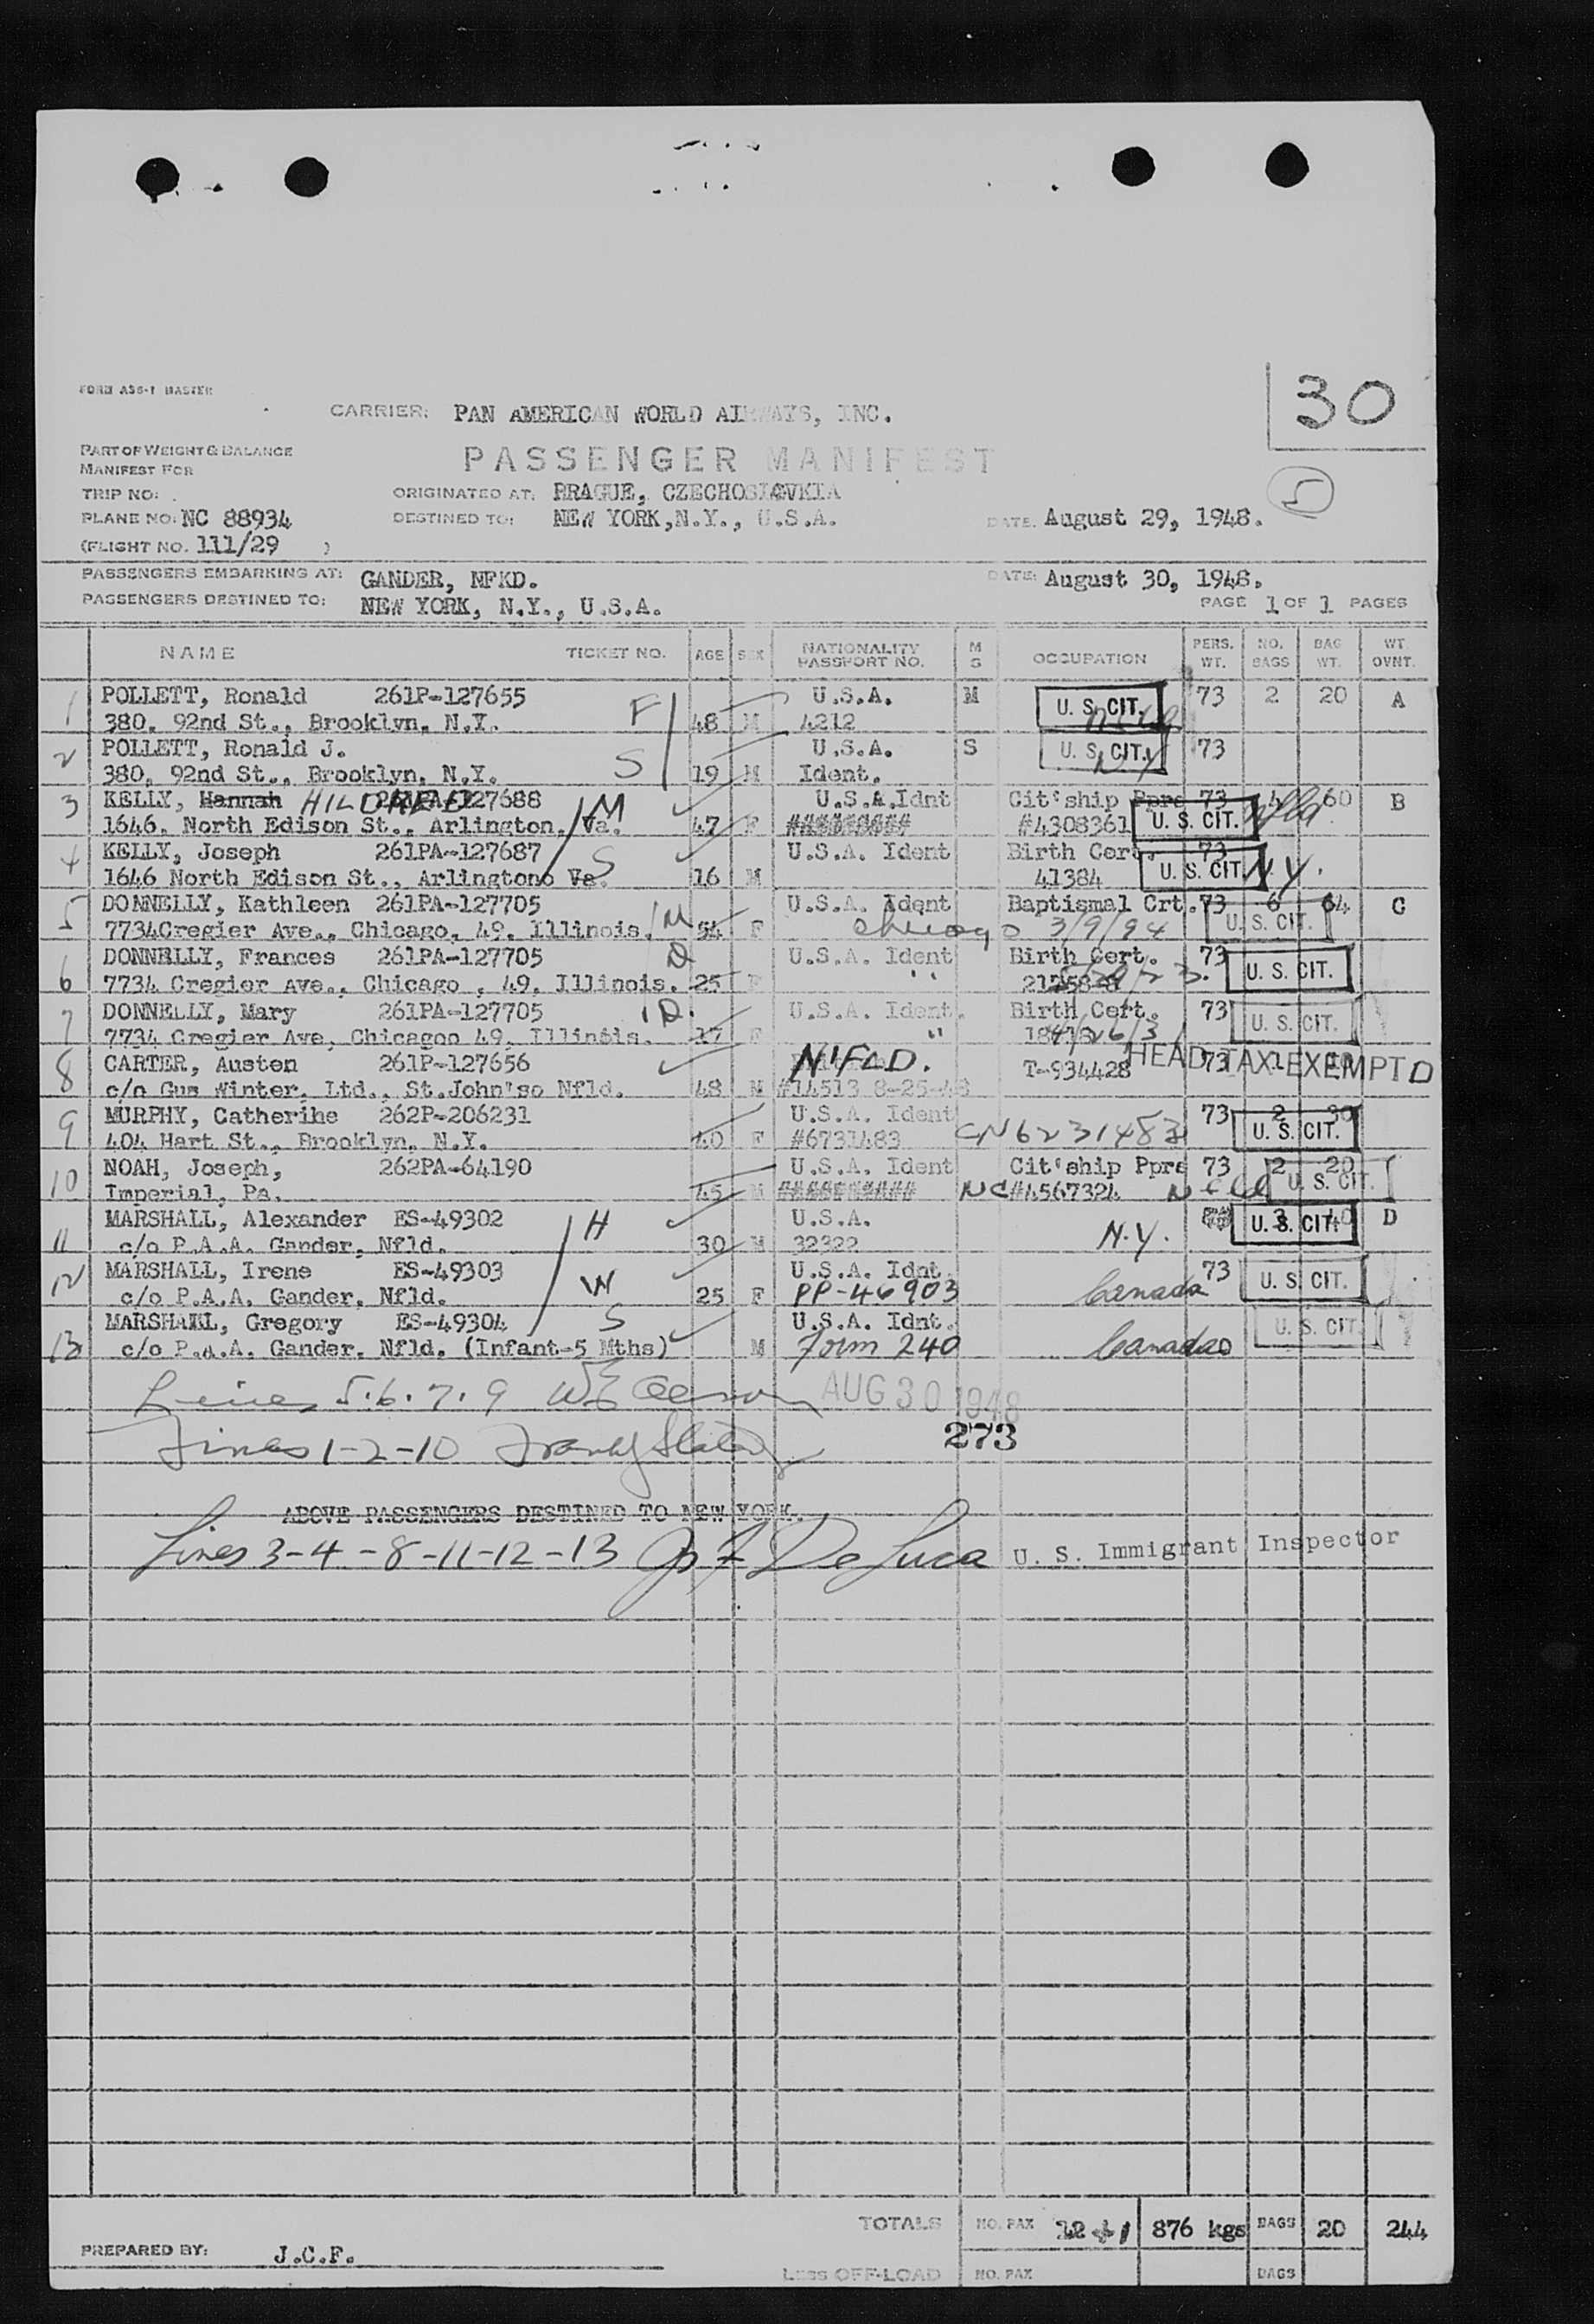 FORM AS6-1 MASTER
30
CARRIER: PAN AMERICAN WORLD AIRWAYS, INC.
PART OF WEIGHT & BALANCE
MANIFEST FOR
PASSENGER MANIFEST
5
TRIP NO:
ORIGINATED AT: PRAGUE, CZECHOSLOVKIA
PLANE NO: NC 88934
DESTINED TO: NEW YORK,N.Y., U.S.A.
DATE: August 29, 1948.
(FLIGHT NO. 111/29 )
PASSENGERS EMBARKING AT: GANDER, NFKD. DATE: August 30, 1948.
PASSENGERS DESTINED TO: NEW YORK, N.Y., U.S.A. PAGE 1 OF 1 PAGES
NAME TICKET NO. AGE SEX NATIONALITY PASSPORT NO. M S OCCUPATION PERS. WT. NO. BAGS BAG WT. WT OVNT.
1 POLLETT, Ronald 261P-127655 F U.S.A. M U. S. CIT. 73 2 20 A
380, 92nd St., Brooklyn, N.Y. 48 M 4212
2 POLLETT, Ronald J. U.S.A. S U. S. CIT. 73
380, 92nd St., Brooklyn, N.Y. S 19 M Ident. N.Y
3 KELLY, Hannah HILDRED 261PA-127688 M U.S.A.Idnt Cit'ship Pprs 73 60 B
1646, North Edison St., Arlington, Va. 47 F ######### #4308361 U. S. CIT. Nfld
4 KELLY, Joseph 261PA-127687 U.S.A. Ident Birth Cert. 73
1646 North Edison St., Arlingtono Va. S 16 M 41384 U. S. CIT. N.Y.
5 DONNELLY, Kathleen 261PA-127705 U.S.A. Ident Baptismal Crt. 73 6 64 C
7734Cregier Ave., Chicago, 49, Illinois. M 54 F Chicago 3/9/94 U. S. CIT.
6 DONNELLY, Frances 261PA-127705 D U.S.A. Ident Birth Cert. 73
7734 Cregier Ave., Chicago , 49, Illinois. 25 F " U. S. CIT.
7 DONNELLY, Mary 261PA-127705 D. U.S.A. Ident. Birth Cert. 73
7734 Cregier Ave, Chicagoo 49, Illinois. 17 F " U. S. CIT.
8 CARTER, Austen 261P-127656 N'FLD. T-934428 73 HEAD TAX EXEMPT D
c/o Gus Winter, Ltd., St.John'so Nfld. 48 M #14513 8-25-48
9 MURPHY, Catherine 262P-206231 U.S.A. Ident 73 2 30
404 Hart St., Brooklyn, N.Y. 40 F #6731483 CN 6231483 U. S. CIT.
10 NOAH, Joseph, 262PA-64190 U.S.A. Ident Cit'ship Pprs 73 2 20
Imperial, Pa. 45 M ########## NC #4567324 Nfld U. S. CIT.
11 MARSHALL, Alexander ES-49302 H U.S.A. 3 40 D
c/o P.A.A. Gander, Nfld. 30 M 32322 N.Y. U. S. CIT.
12 MARSHALL, Irene ES-49303 U.S.A. Idnt. 73
c/o P.A.A. Gander, Nfld. W 25 F PP-46903 Canada U. S. CIT.
13 MARSHALL, Gregory ES-49304 S U.S.A. Idnt. U. S. CIT.
c/o P.A.A. Gander, Nfld. (Infant-5 Mths) M Form 240 Canada
Lines 5.6.7.9 AUG 30 1948
273
Lines 1-2-10
ABOVE PASSENGERS DESTINED TO NEW YORK.
Lines 3-4-8-11-12-13 De Luca U. S. Immigrant Inspector
TOTALS NO. PAX 12 +1 876 kgs BAGS 20 244
PREPARED BY: J.C.F.
Less OFF-LOAD NO. PAX BAGS